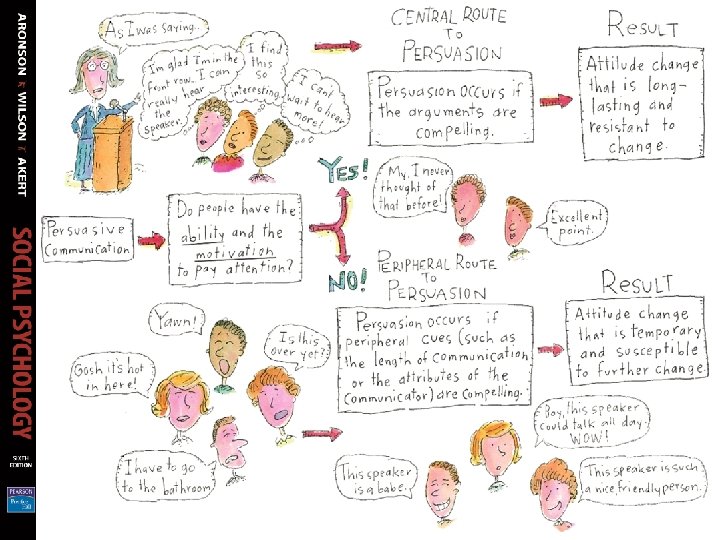 ARONSON WILSON AKERT
SOCIAL PSYCHOLOGY
SIXTH
EDITION
PEARSON
As I was saying...
I'm glad I'm in the
front row. I can
really hear
the
speaker.
I find
this
so
interesting.
I can't
wait to hear
more!
CENTRAL ROUTE
TO
PERSUASION
Persuasion occurs if
the arguments are
compelling.
RESULT
Attitude change
that is long-
lasting and
resistant to
change.
YES!
My, I never
thought of
that before!
Excellent
point.
Persuasive
Communication
Do people have the
ability and the
motivation
to pay attention?
NO!
PERIPHERAL ROUTE
TO
PERSUASION
Persuasion occurs if
peripheral cues (such as
the length of communication
or the attributes of the
communicator) are compelling.
RESULT
Attitude change
that is temporary
and susceptible
to further change.
Yawn!
Is this
over yet?
Gosh it's hot
in here!
I have to go
to the bathroom
Boy, this speaker
could talk all day.
WOW!
This speaker
is a babe.
This speaker is such
a nice, friendly person.